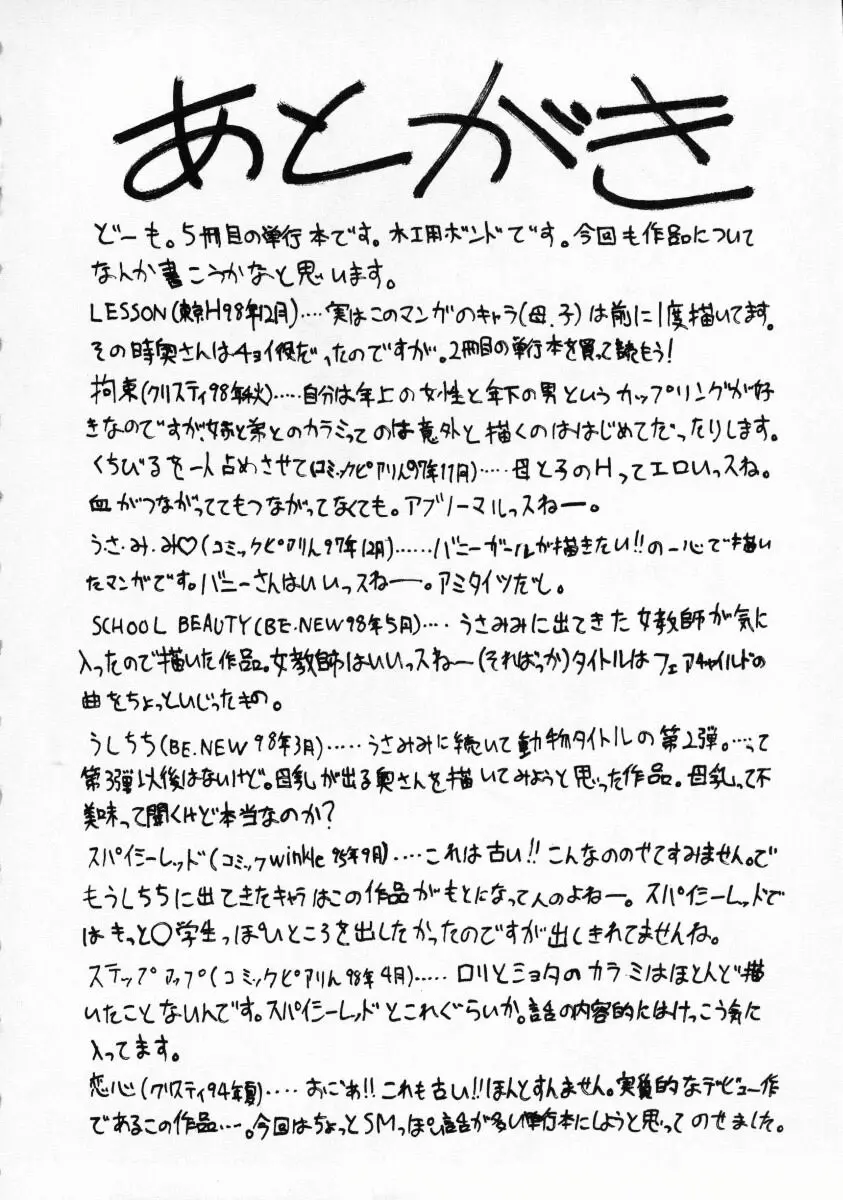 あとがき
どーも。5冊目の単行本です。木工用ボンドです。今回も作品について
なんか書こうかなと思います。
LESSON(東京H98年12月)‥‥実はこのマンガのキャラ(母、子)は前に1度描いてます。
その時奥さんはチョイ役だったのですが。2冊目の単行本を買って読もう!
拘束(クリスティ98年秋)‥‥‥自分は年上の女性と年下の男というカップリングが好
きなのですが、姉と弟とのカラミってのは意外と描くのははじめてだったりします。
くちびるを一人占めさせて(コミックピアリん97年11月)‥‥‥母と子のHってエロいっスね。
血がつながっててもつながってなくても。アブノーマルっスねー。
うさ・み・み♡(コミックピアリん97年12月)‥‥‥バニーガールが描きたい!!の一心で描い
たマンガです。バニーさんはいいっスねー。アミタイツだし。
SCHOOL BEAUTY(BE.NEW98年5月)‥‥うさみみに出てきた女教師が気に
入ったので描いた作品。女教師はいいっスねー(そればっか)タイトルはフェアチャイルドの
曲をちょっといじったもの。
うしちち(BE.NEW98年3月)‥‥‥うさみみに続いて動物タイトルの第2弾。‥‥って
第3弾以後はないけど。母乳が出る奥さんを描いてみようと思った作品。母乳って不
美味って聞くけど本当なのか?
スパイシーレッド(コミックwinkle95年9月)‥‥これは古い!!こんなののせてすみません。で
もうしちちに出てきたキャラはこの作品がもとになってんのよねー。スパイシーレッドで
はもっと○学生っぽいところを出したかったのですが出しきれてませんね。
ステップアップ(コミックピアリん98年4月)‥‥‥ロリとショタのカラミはほとんど描
いたことないんです。スパイシーレッドとこれぐらいか。話の内容的にはけっこう気に
入ってます。
恋心(クリスティ94年夏)‥‥おにぁ!!これも古い!!ほんとすんません。実質的なデビュー作
であるこの作品‥‥。今回はちょっとSMっぽい話が多い単行本にしようと思ってのせました。